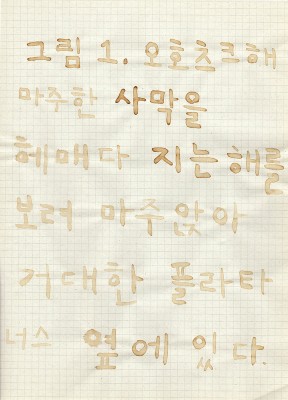 그림 1. 오호츠크해
마주한 사막을
헤매다 지는 해를
보러 마주 앉아
거대한 플라타
너스 옆에 있다.